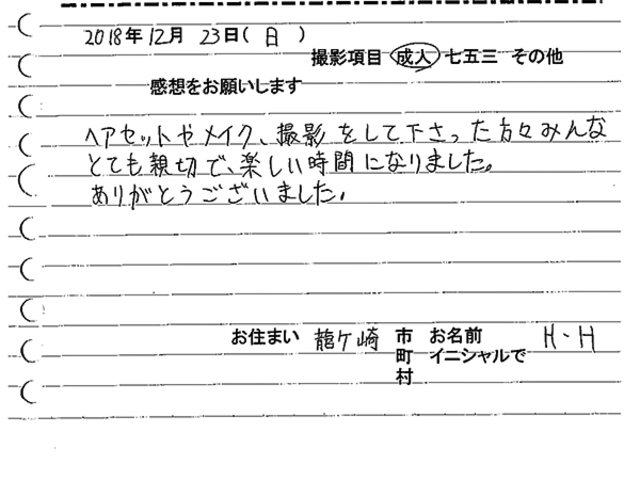 2018年12月23日(日)
撮影項目 成人 七五三 その他
感想をお願いします
ヘアセットやメイク、撮影をして下さった方々みんな
とても親切で、楽しい時間になりました。
ありがとうございました。
お住まい 龍ケ崎 市 お名前 H・H
町 イニシャルで
村